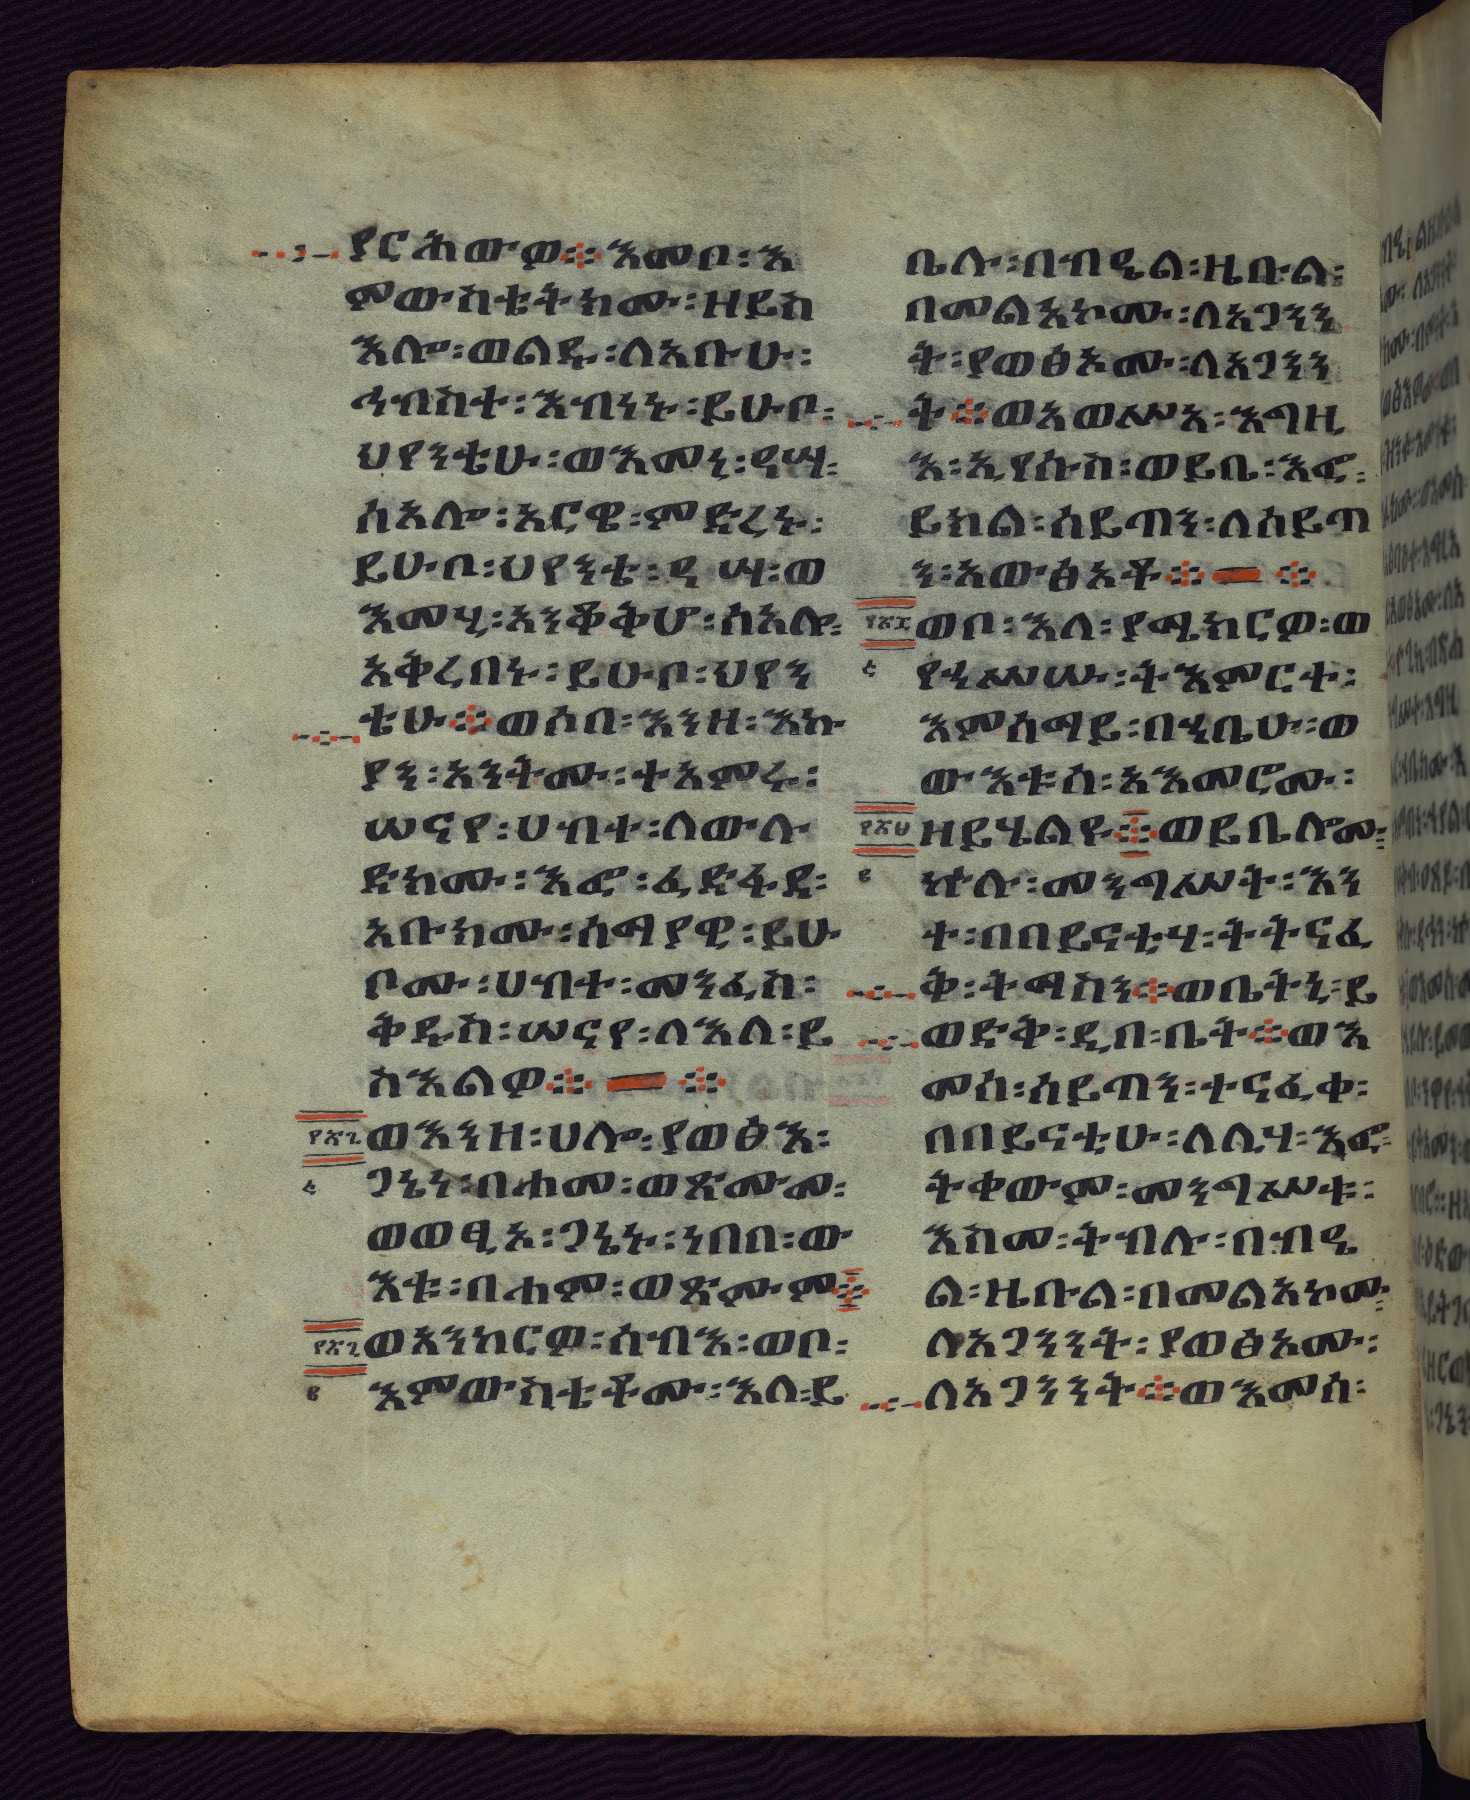 ያርሕውዎ፨እመቦ፡እ
ምውስቴትክሙ፡ዘይስ
እሎ፡ወልዱ፡ለአቡሁ፡
ኅብስተ፡እብነኑ፡ይሁቦ፡
ህየንቴሁ፡ወእመኒ፡ዓሣ፡
ሰአሎ፡አርዌ፡ምድረኑ፡
ይሁቦ፡ህየንቴ፡ዓሣ፡ወ
እመሂ፡አንቆቅሆ፡ሰአሎ፡
አቅረበኑ፡ይሁቦ፡ህየን
ቴሁ፨ወሶበ፡እንዘ፡እኩ
ያን፡አንትሙ፡ተአምሩ፡
ሠናየ፡ሀብተ፡ለውሉ
ድክሙ፡እፎ፡ፈድፋደ፡
አቡክሙ፡ሰማያዊ፡ይሁ
ቦሙ፡ሀብተ፡መንፈስ፡
ቅዱስ፡ሠናየ፡ለእለ፡ይ
ስእልዎ፨ ፨
ወእንዘ፡ሀሎ፡ያወፅእ፡
ጋኔነ፡በሐመ፡ወጽሙመ፡
ወወፂኦ፡ጋኔኑ፡ነበበ፡ው
እቱ፡በሐም፡ወጽሙም፨
ወአንክርዎ፡ሰብእ፡ወቦ፡
እምውስቴቶሙ፡እለ፡ይ
ቤሉ፡በብዔል፡ዜቡል፡
በመልአኮሙ፡ለአጋንን
ት፡ያወፅኦሙ፡ለአጋንን
ት፨ወአወሥአ፡እግዚ
እ፡ኢየሱስ፡ወይቤ፡እፎ፡
ይክል፡ሰይጣን፡ለሰይጣ
ን፡አውፅኦቶ፨ ፨
ወቦ፡እለ፡ያሜክርዎ፡ወ
የኃሥሡ፡ትእምርተ፡
እምሰማይ፡በኀቤሁ፡ወ
ውእቱሰ፡አእመሮሙ፡
ዘይሄልዩ፨ወይቤሎሙ፡
ኵሉ፡መንግሥት፡እን
ተ፡በበይናቲሃ፡ትትናፈ
ቅ፡ትማስን፨ወቤትኒ፡ይ
ወድቅ፡ዲበ፡ቤት፨ወእ
መሰ፡ሰይጣን፡ተናፈቀ፡
በበይናቲሁ፡ለሊሃ፡እፎ፡
ትቀውም፡መንግሥቱ፡
እስመ፡ትብሉ፡በብዔ
ል፡ዜቡል፡በመልአኮሙ፡
ለአጋንንት፡ያወፅኦሙ፡
ለአጋንንት፨ወእመሰ፡